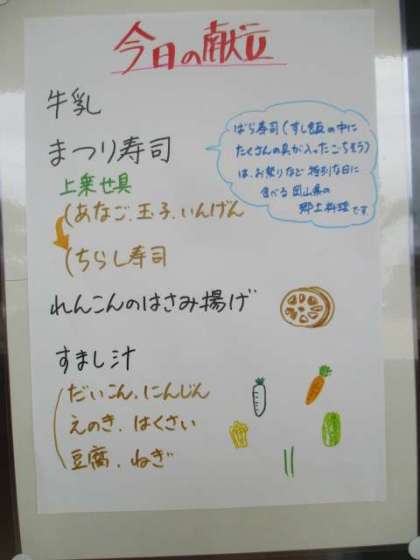 今日の献立
牛乳
まつり寿司
ばら寿司(すし飯の中に
たくさんの具が入ったごちそう)
は、お祭りなど特別な日に
食べる岡山県の
郷土料理です。
上乗せ具
(あなご、玉子、いんげん
(ちらし寿司
れんこんのはさみ揚げ
すまし汁
だいこん、にんじん
えのき、はくさい
豆腐、ねぎ